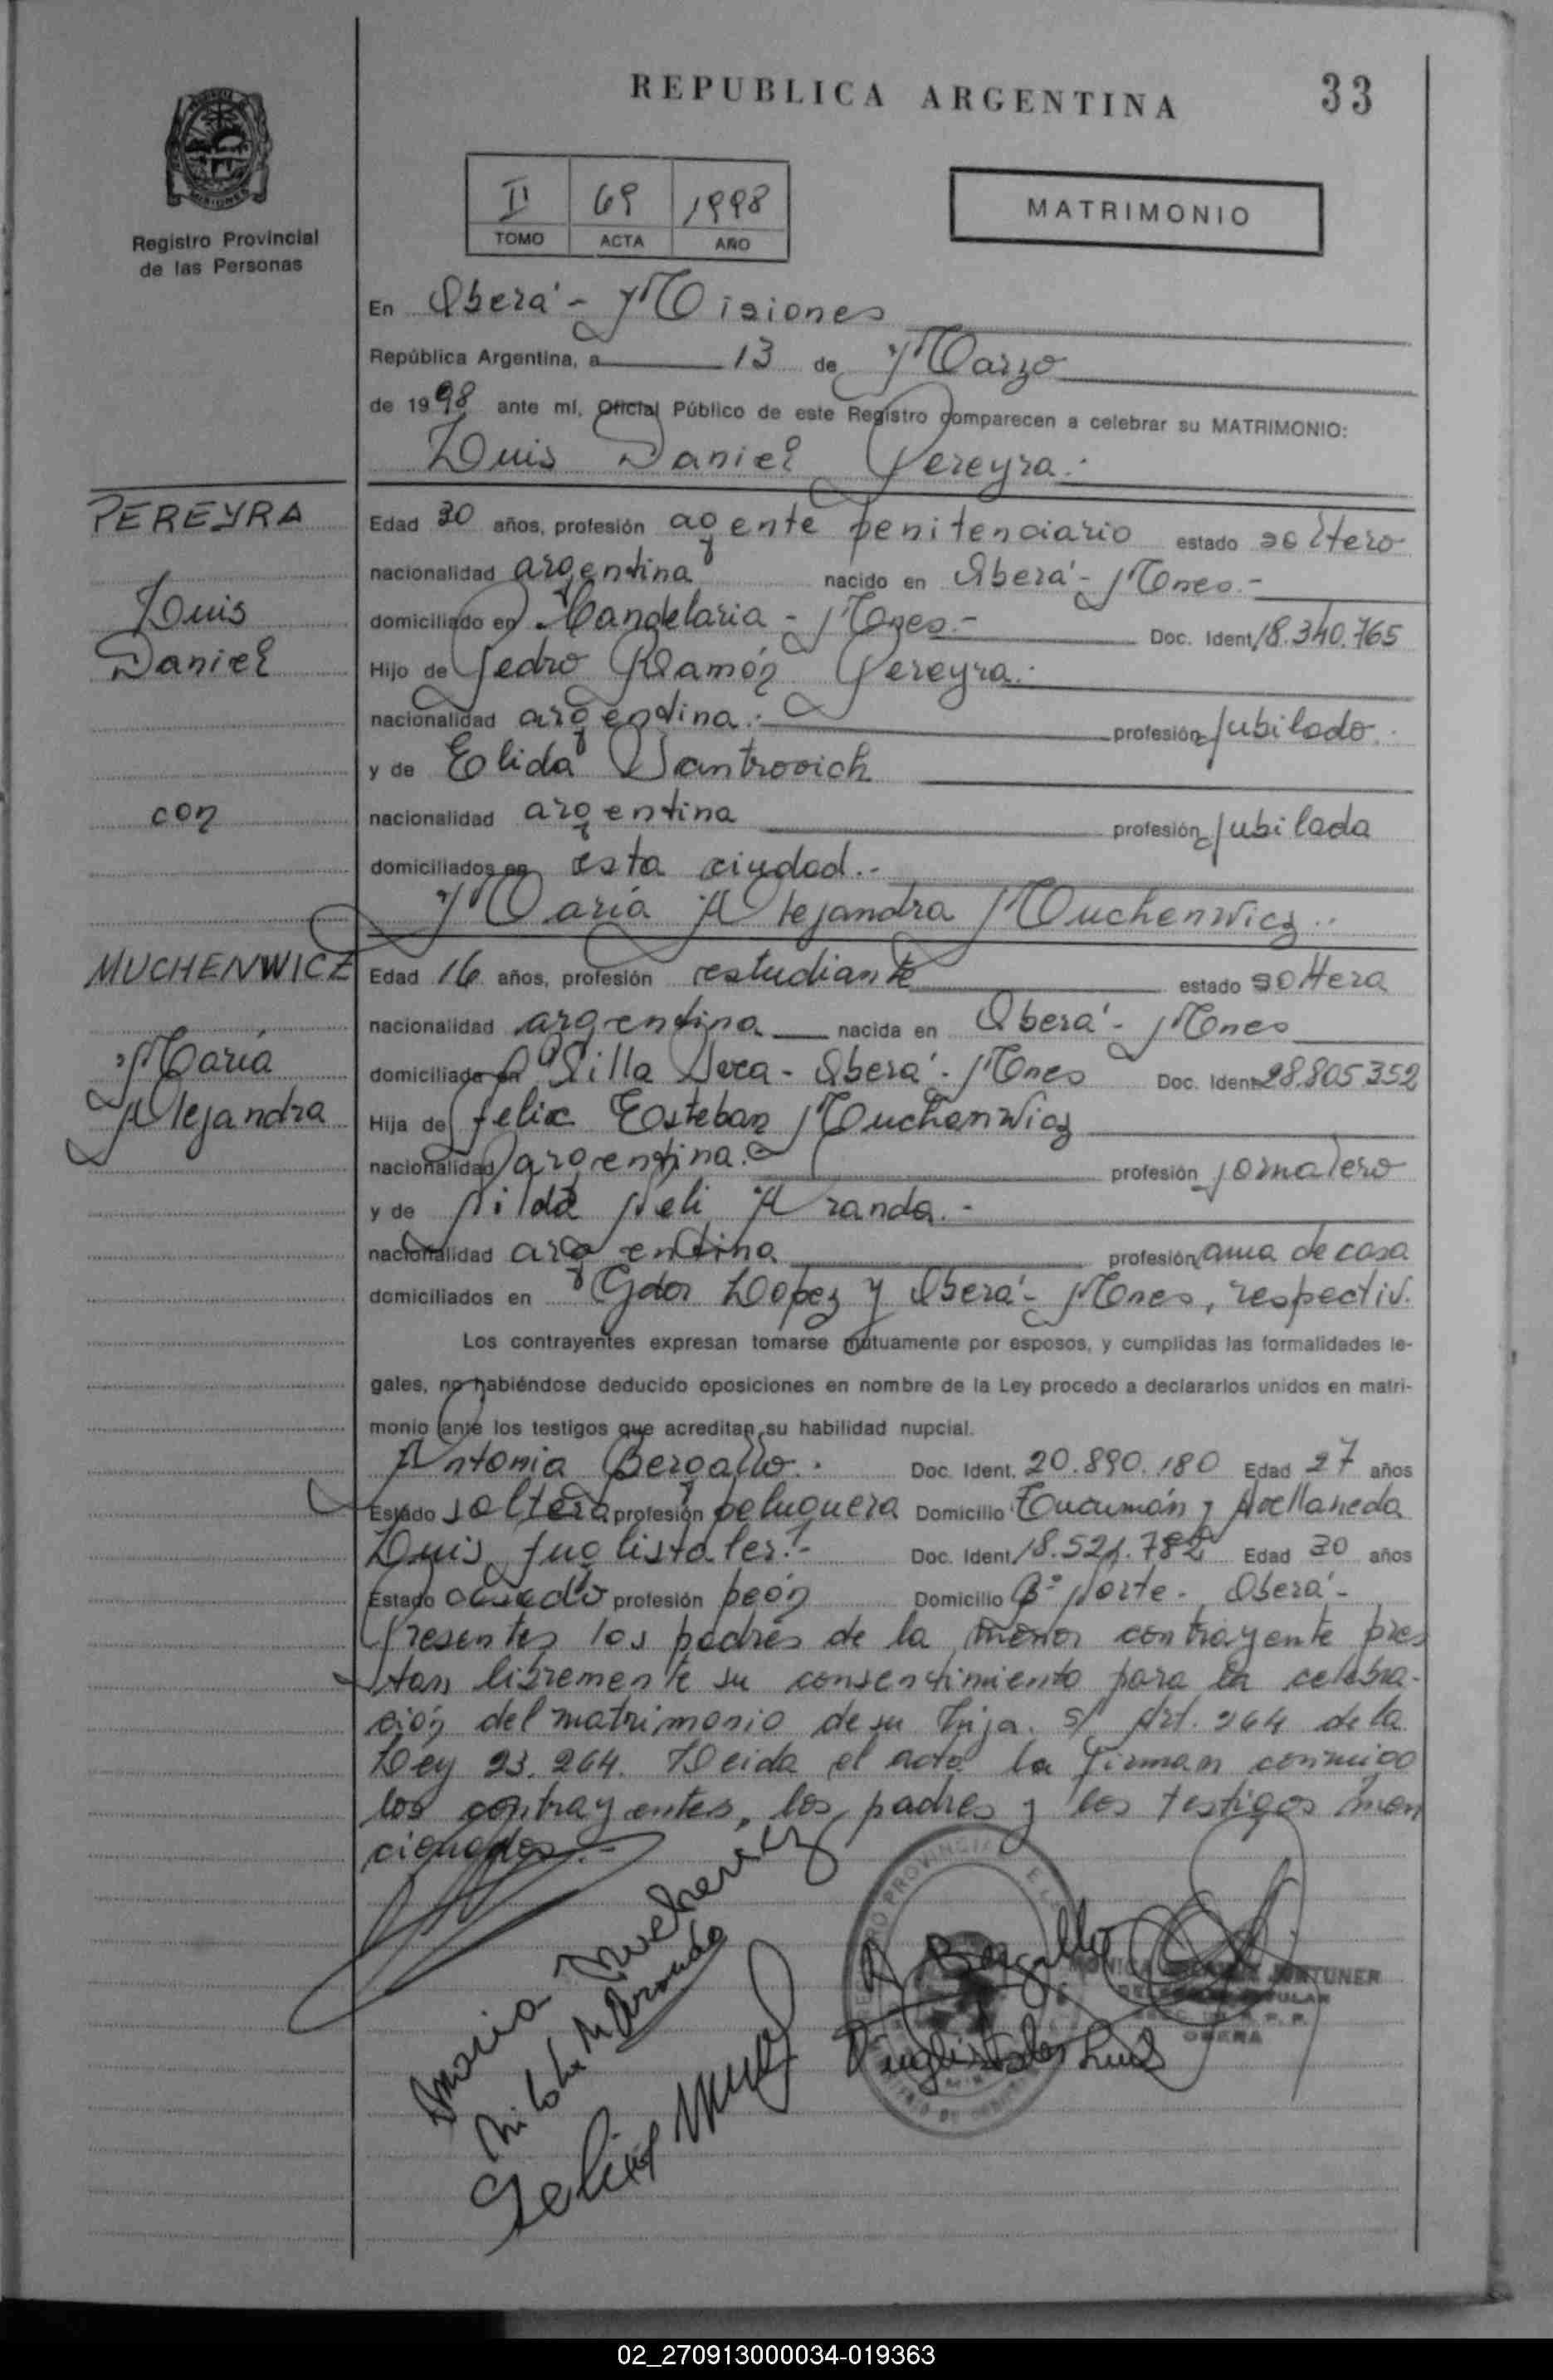 REPUBLICA ARGENTINA
33
Registro Provincial
de las Personas
II 69 1998
TOMO ACTA AÑO
MATRIMONIO
En Oberá - Misiones
República Argentina, a 13 de Marzo
de 1998 ante mí, Oficial Público de este Registro comparecen a celebrar su MATRIMONIO:
Luis Daniel Pereyra.-
PEREYRA
Luis
Daniel
con
MUCHENWICZ
María
Alejandra
Edad 30 años, profesión agente penitenciario estado soltero
nacionalidad argentina nacido en Oberá - Mnes.-
domiciliado en Candelaria - Mnes.- Doc. Ident. 18.340.765
Hijo de Pedro Ramón Pereyra.-
nacionalidad argentina.- profesión jubilado.-
y de Elida Santrovich
nacionalidad argentina profesión jubilada
domiciliados en esta ciudad.-
María Alejandra Muchenwicz.-
Edad 16 años, profesión estudiante estado soltera
nacionalidad argentina nacida en Oberá - Mnes
domiciliada en Villa Svea - Oberá - Mnes Doc. Ident. 28.805.352
Hija de Felix Esteban Muchenwicz
nacionalidad argentina.- profesión jornalero
y de Nilda Neli Aranda.-
nacionalidad argentina profesión ama de casa
domiciliados en Gdor Lopez y Oberá - Mnes, respectiv.
Los contrayentes expresan tomarse mutuamente por esposos, y cumplidas las formalidades le-
gales, no habiéndose deducido oposiciones en nombre de la Ley procedo a declararlos unidos en matri-
monio ante los testigos que acreditan su habilidad nupcial.
Antonia Bergallo.- Doc. Ident. 20.890.180 Edad 27 años
Estado soltera profesión peluquera Domicilio Tucumán y Avellaneda
Luis Fuglistaler.- Doc. Ident. 18.521.782 Edad 30 años
Estado casado profesión peón Domicilio Bº Norte - Oberá -
Presentes los padres de la menor contrayente pres
tan libremente su consentimiento para la celebra-
ción del matrimonio de su hija. s/ Art. 264 de la
Ley 23.264. Leida el acta la firman conmigo
los contrayentes, los padres y los testigos men
cionados.-
Maria Muchenwicz
Nilda N Aranda
Felix
A. Bergallo
Fuglistaler Luis
OBERA
02_270913000034-019363